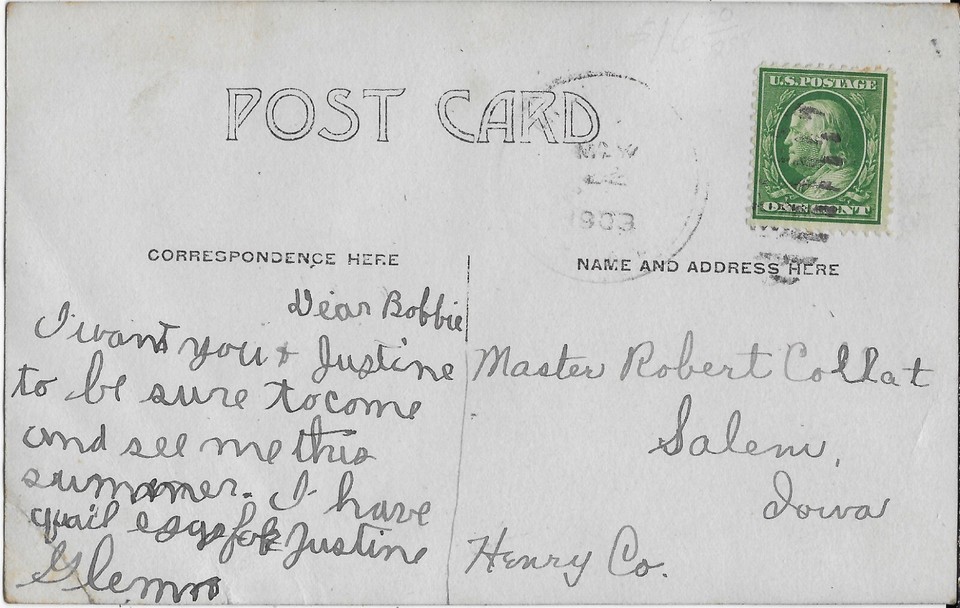 POST CARD
U.S. POSTAGE
ONE CENT
CORRESPONDENCE HERE
NAME AND ADDRESS HERE
Dear Bobbie
I want you & Justine
to be sure to come
and see me this
summer. I have
quail eggs for Justine
Master Robert Collat
Salem,
Iowa
Henry Co.